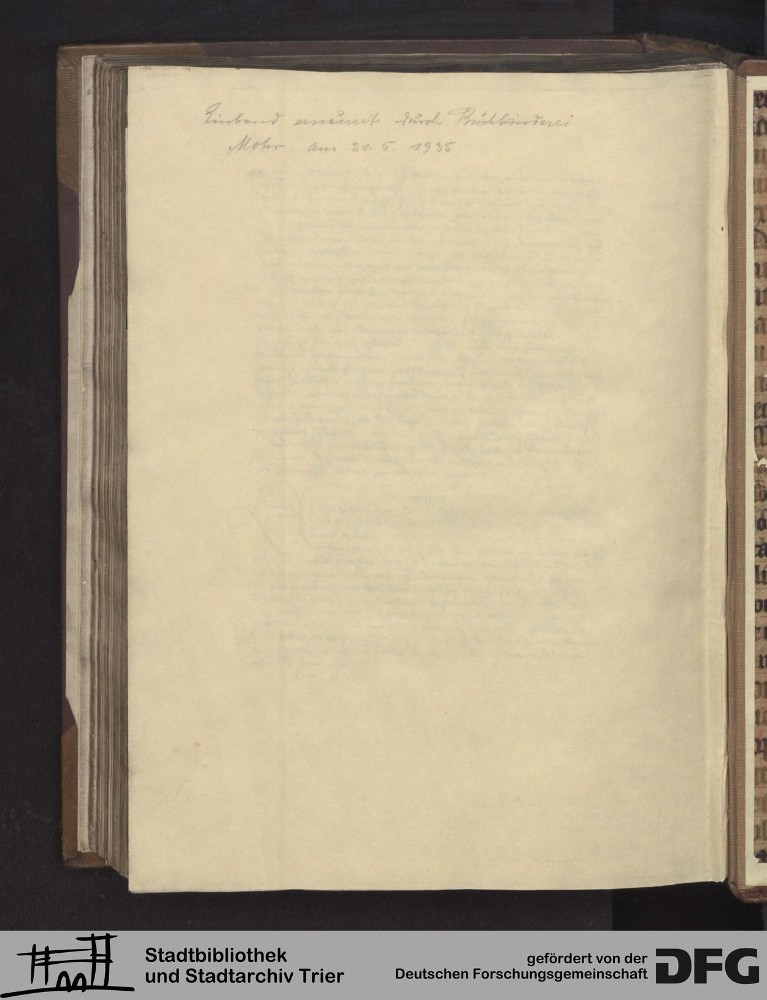 Einband erneuert durch Buchbinderei
Mohr am 21. 5. 1935
Stadtbibliothek
und Stadtarchiv Trier
gefördert von der
Deutschen Forschungsgemeinschaft
DFG